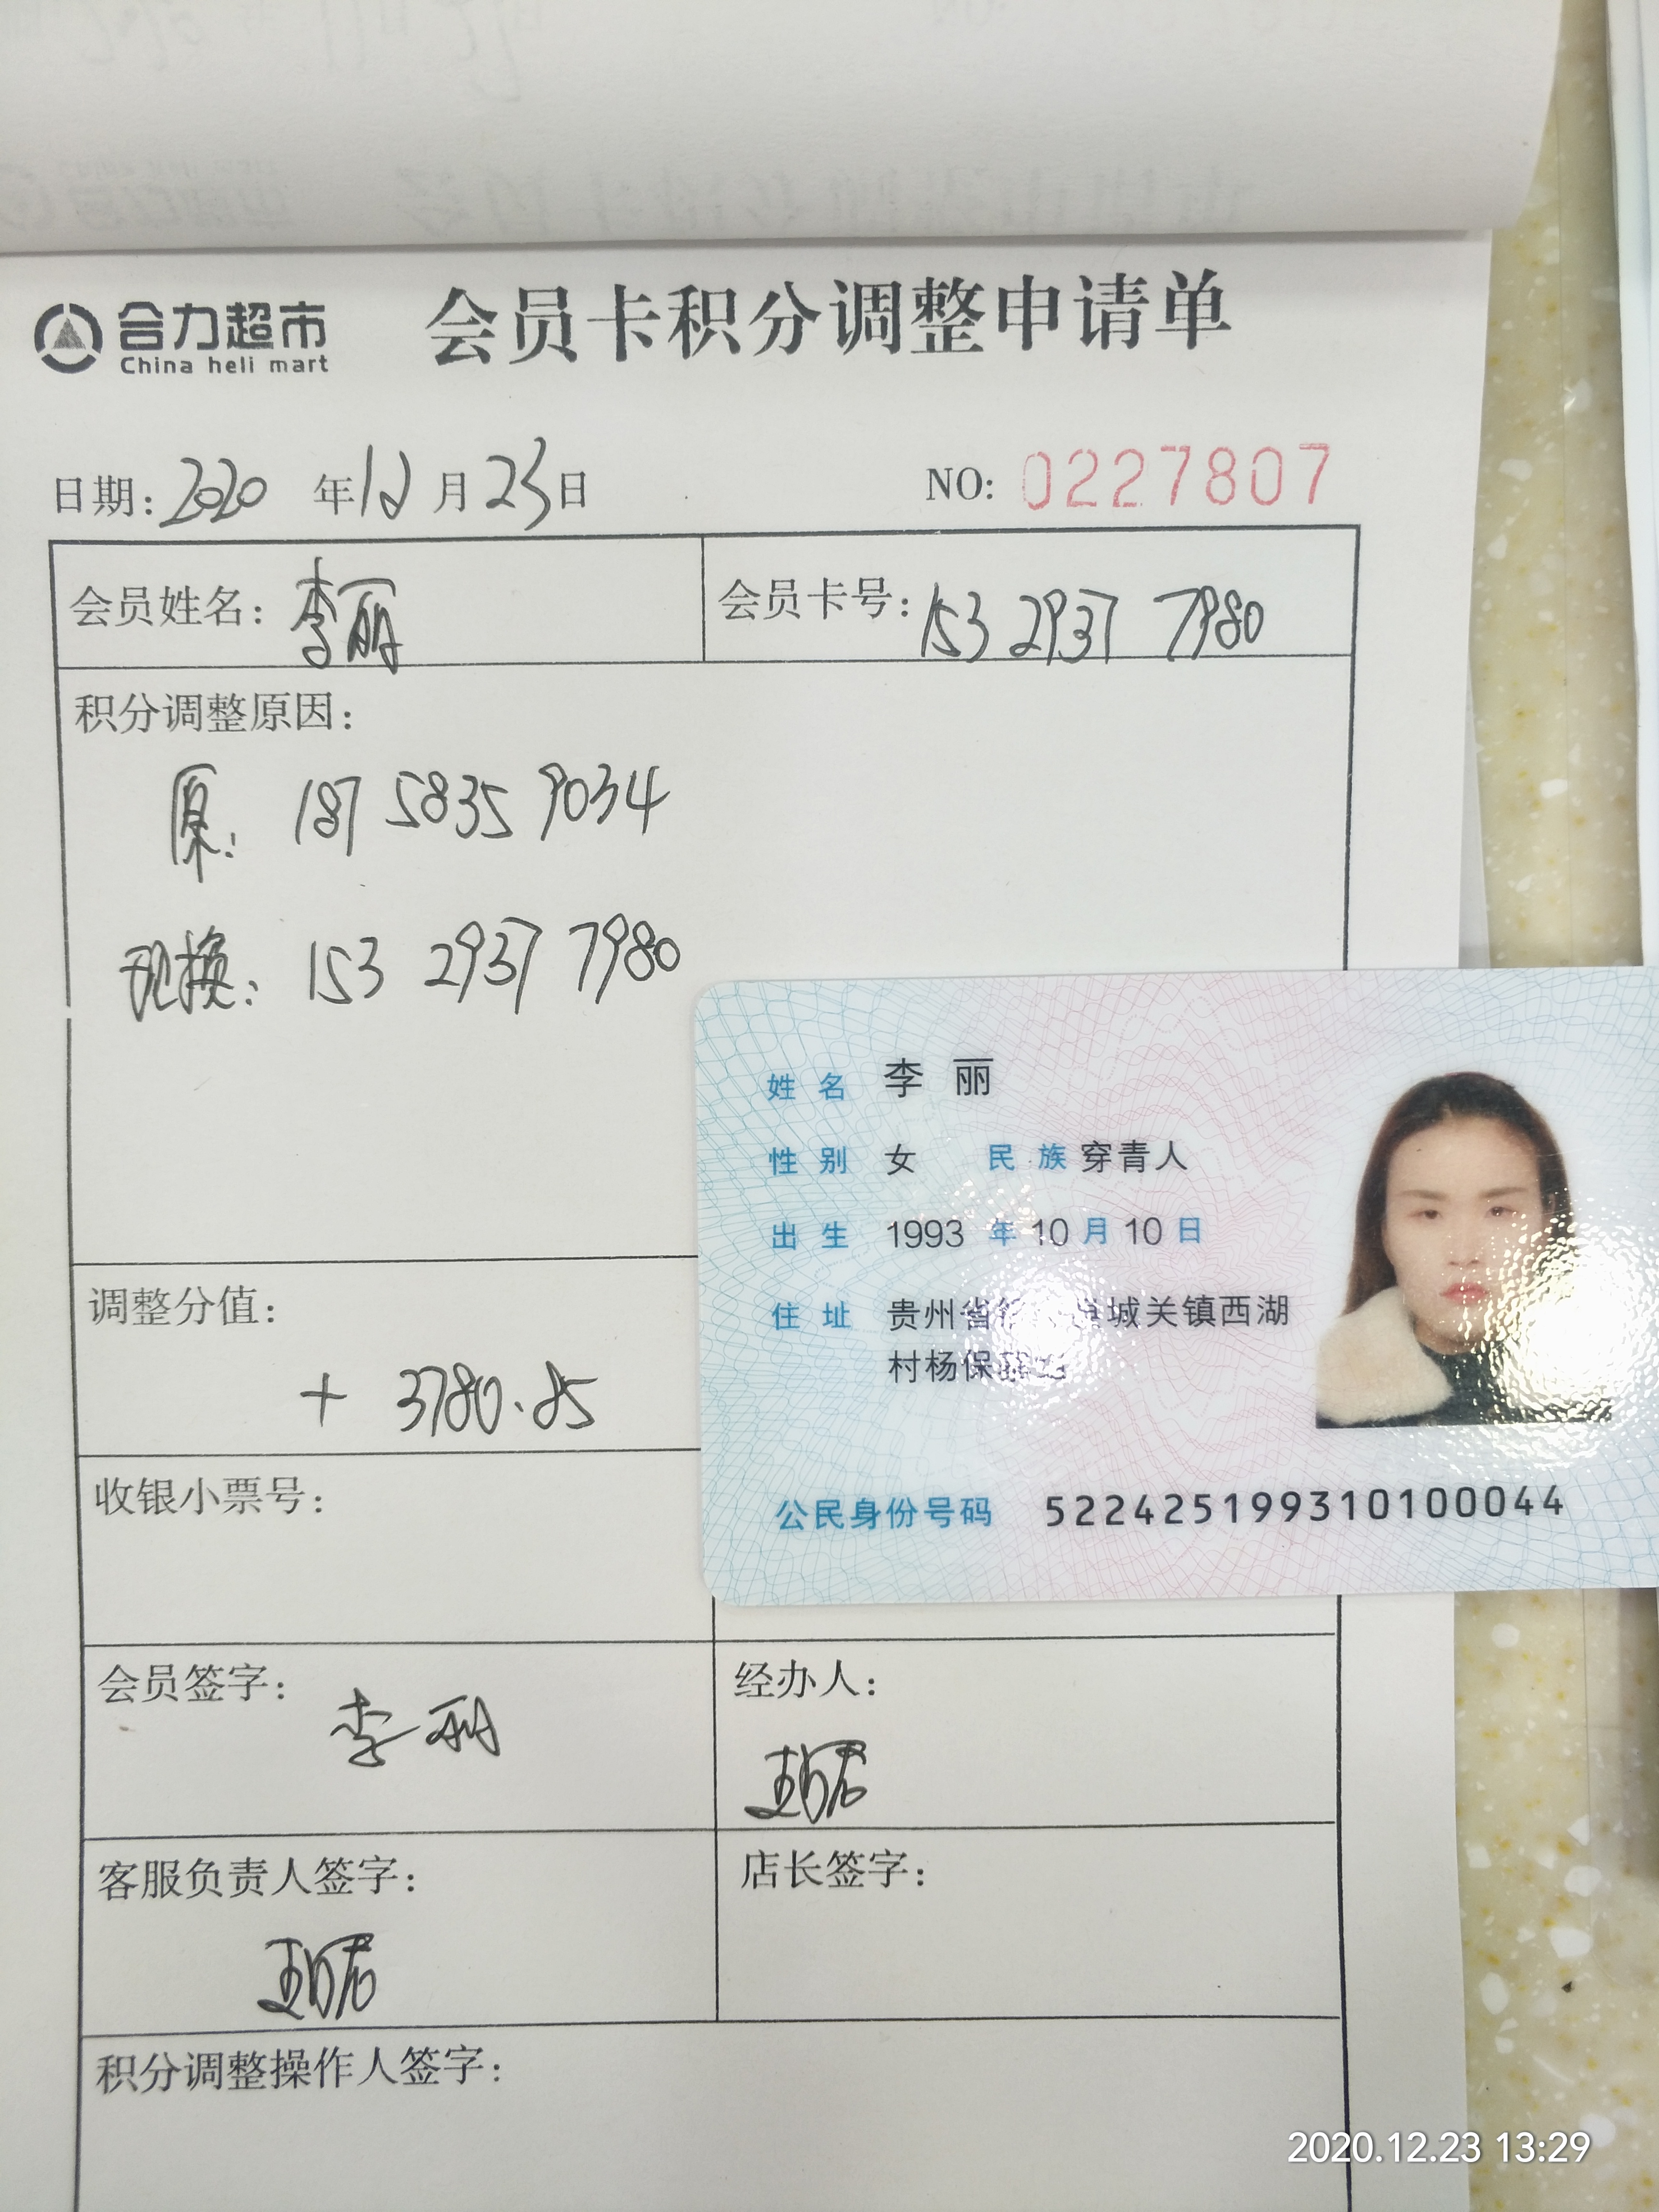 合力超市
China heli mart
会员卡积分调整申请单
日期: 2020 年 12 月 23 日 NO: 0227807
会员姓名: 李丽 会员卡号: 153 2937 7980
积分调整原因:
原: 187 5835 9034
现换: 153 2937 7980
姓名 李丽
性别 女 民族 穿青人
出生 1993 年 10 月 10 日
住址 贵州省 城关镇西湖
村杨保
公民身份号码 522425199310100044
调整分值:
+ 3780.85
收银小票号:
会员签字: 李丽 经办人:
客服负责人签字: 店长签字:
积分调整操作人签字:
2020.12.23 13:29